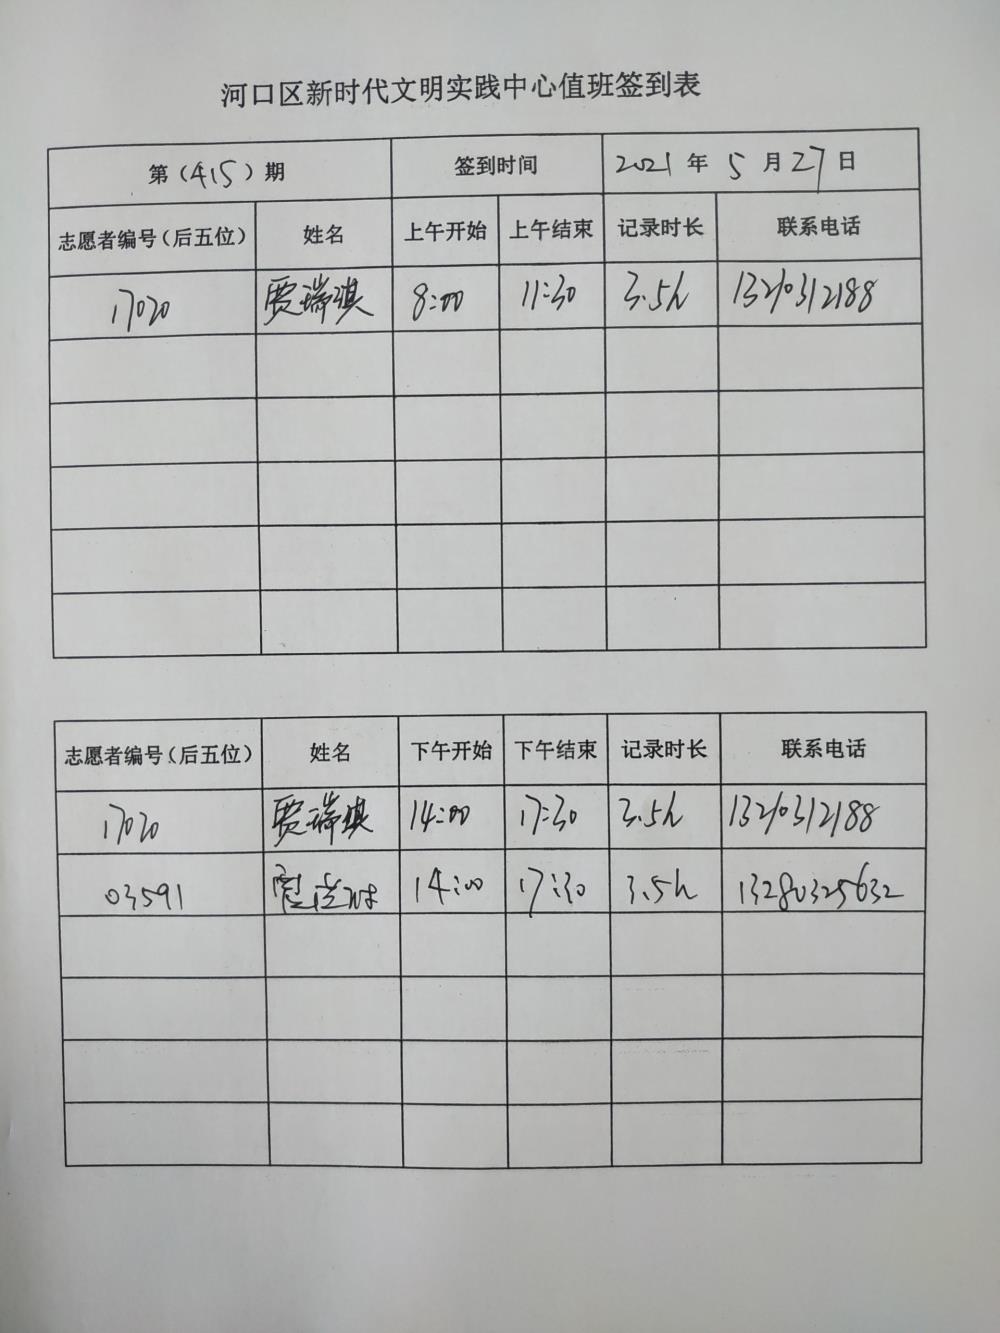 河口区新时代文明实践中心值班签到表
第（415）期 签到时间 2021 年 5 月 27 日
志愿者编号（后五位） 姓名 上午开始 上午结束 记录时长 联系电话
17020 贾瑞淇 8:00 11:30 3.5h 13290312188
志愿者编号（后五位） 姓名 下午开始 下午结束 记录时长 联系电话
17020 贾瑞淇 14:00 17:30 3.5h 13290312188
03591 14:00 17:30 3.5h 13280325632